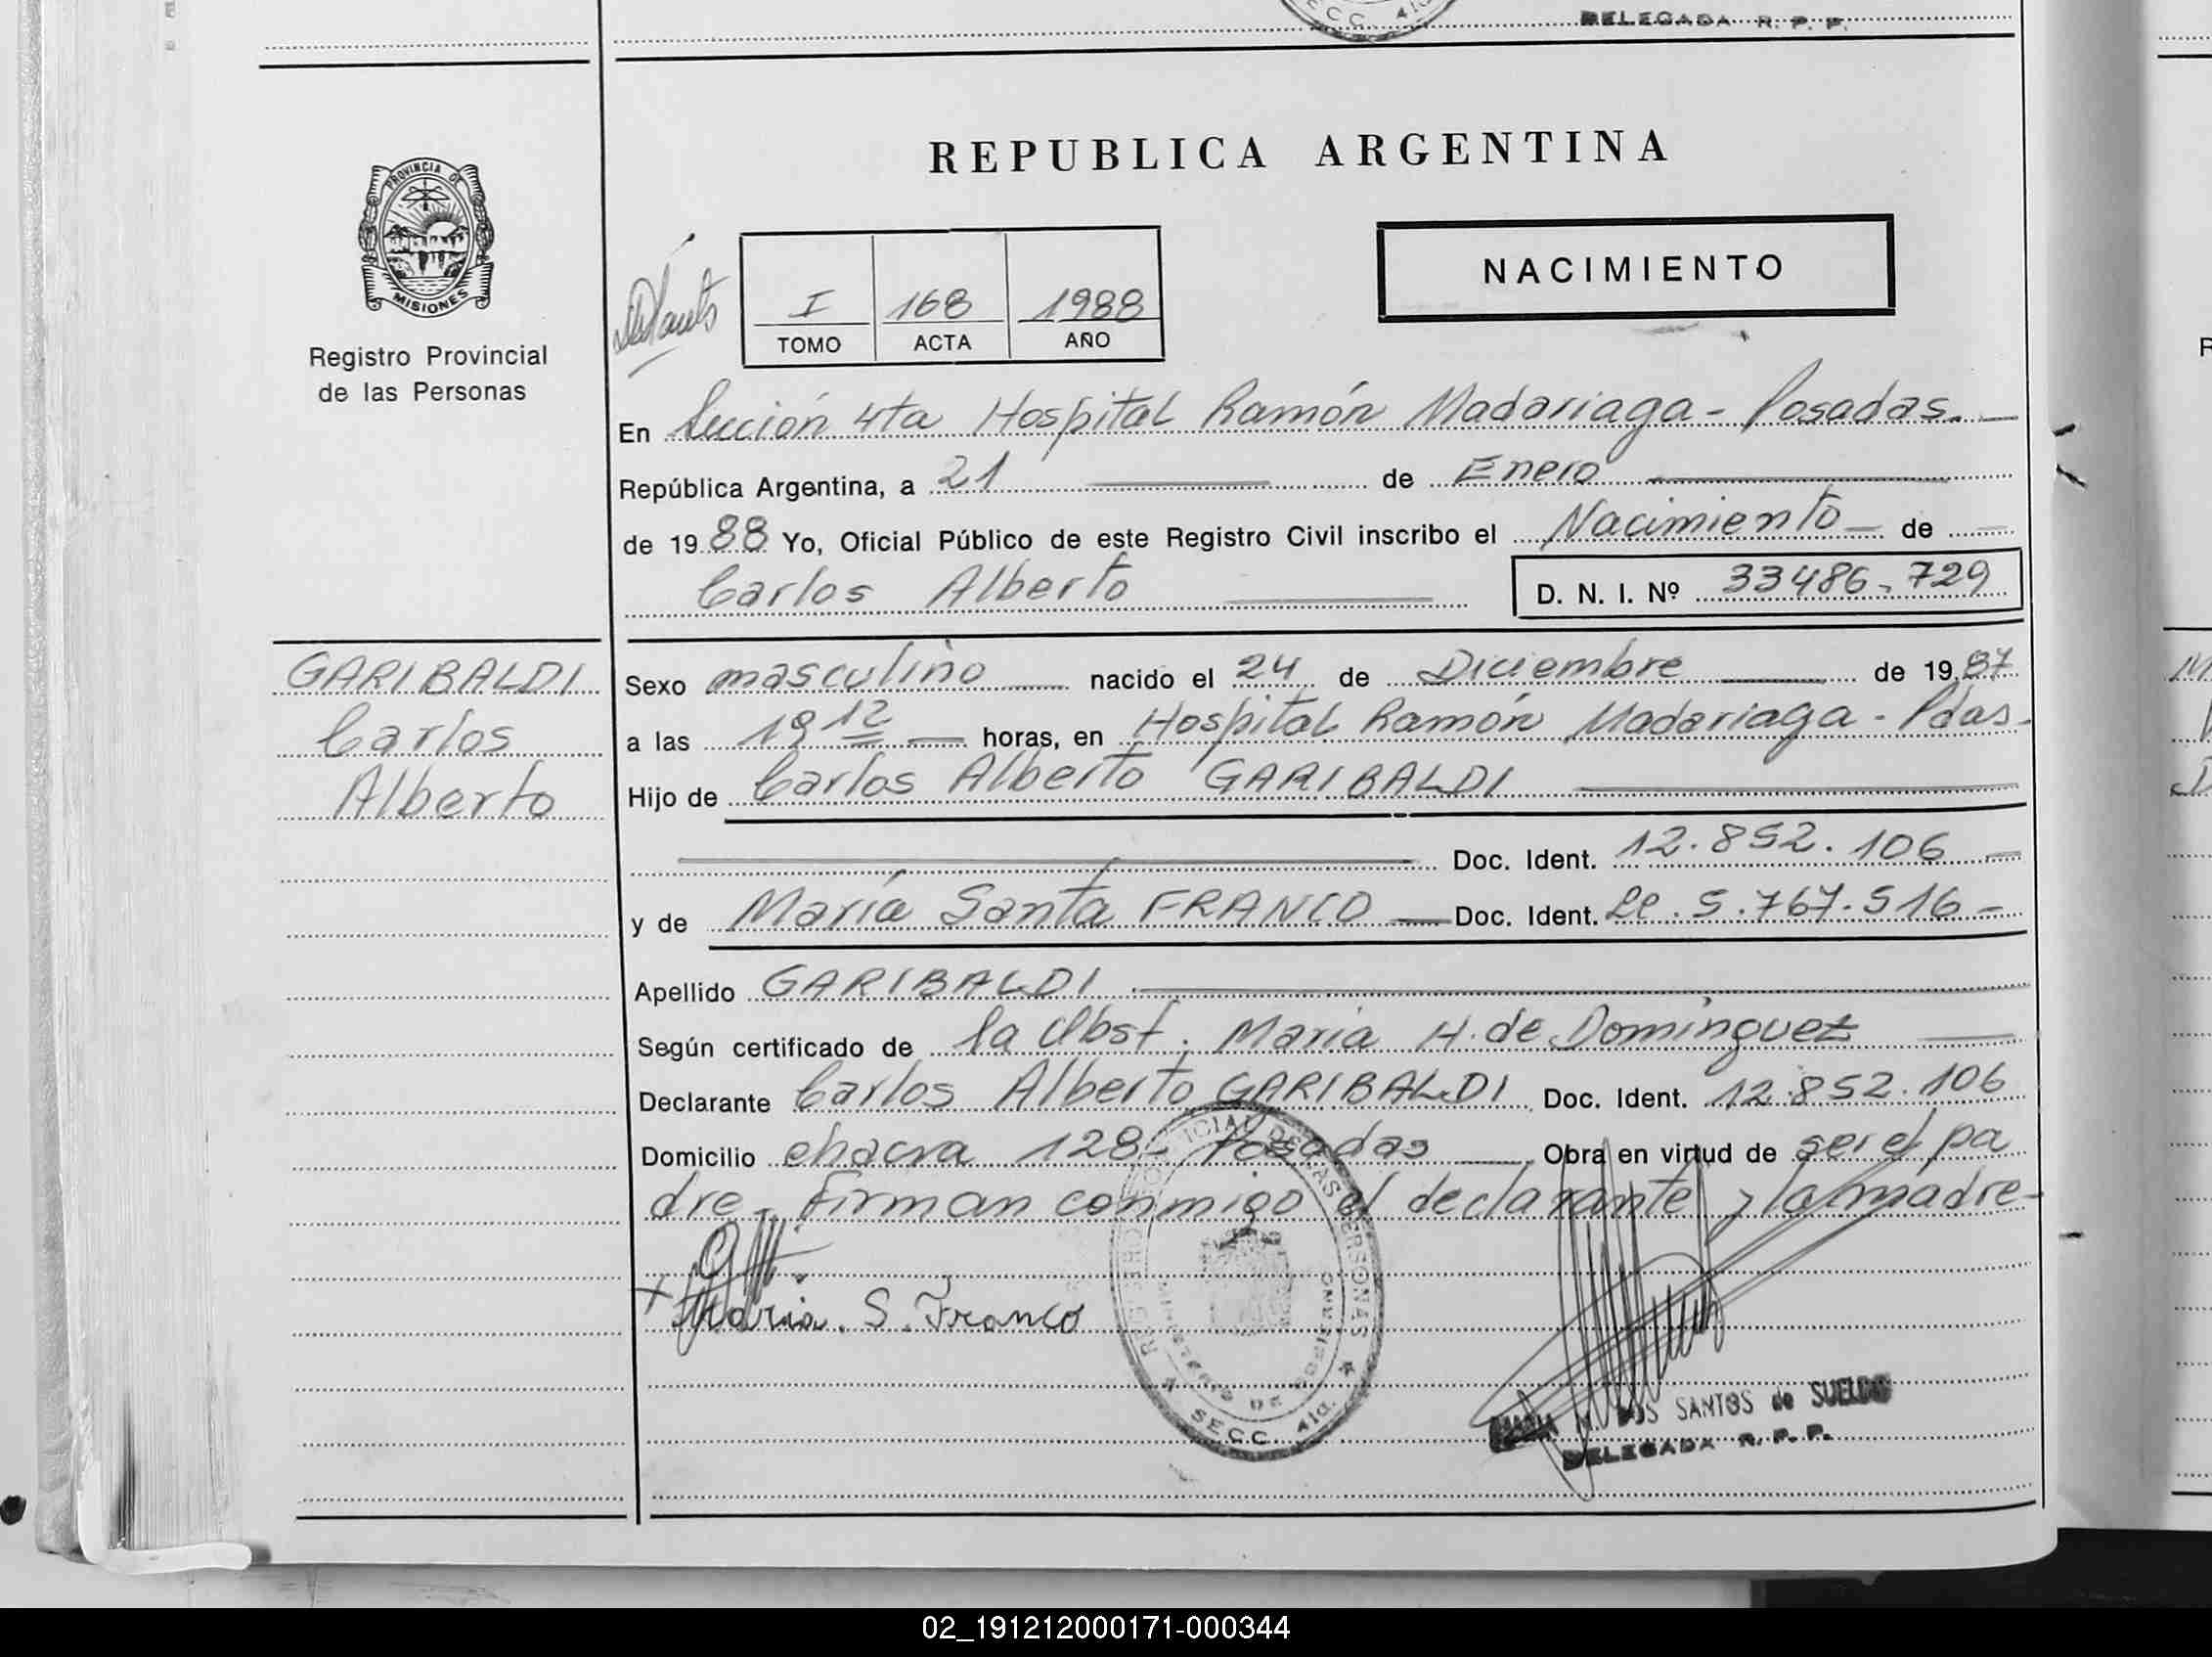 SECC. 4ta.
DELEGADA R. P. P.
REPUBLICA ARGENTINA
PROVINCIA DE
MISIONES
Registro Provincial
de las Personas
NACIMIENTO
I 168 1988
TOMO ACTA AÑO
En Sección 4ta Hospital Ramón Madariaga - Posadas.
República Argentina, a 21 de Enero
de 19 88 Yo, Oficial Público de este Registro Civil inscribo el Nacimiento de
Carlos Alberto D. N. I. Nº 33486.729
GARIBALDI
Carlos
Alberto
Sexo masculino nacido el 24 de Diciembre de 19 87
a las 19 12 horas, en Hospital Ramón Madariaga - Pdas.
Hijo de Carlos Alberto GARIBALDI
Doc. Ident. 12.852.106
y de María Santa FRANCO Doc. Ident. Lc. 5.767.516 -
Apellido GARIBALDI
Según certificado de la Obst. Maria H. de Dominguez
Declarante Carlos Alberto GARIBALDI Doc. Ident. 12.852.106
Domicilio chacra 128 - Posadas Obra en virtud de ser el pa
dre - Firman conmigo el declarante y la madre -
Maria. S. Franco
SECC. 4ta.
MARIA M. DOS SANTOS de SUELDO
DELEGADA R. P. P.
02_191212000171-000344